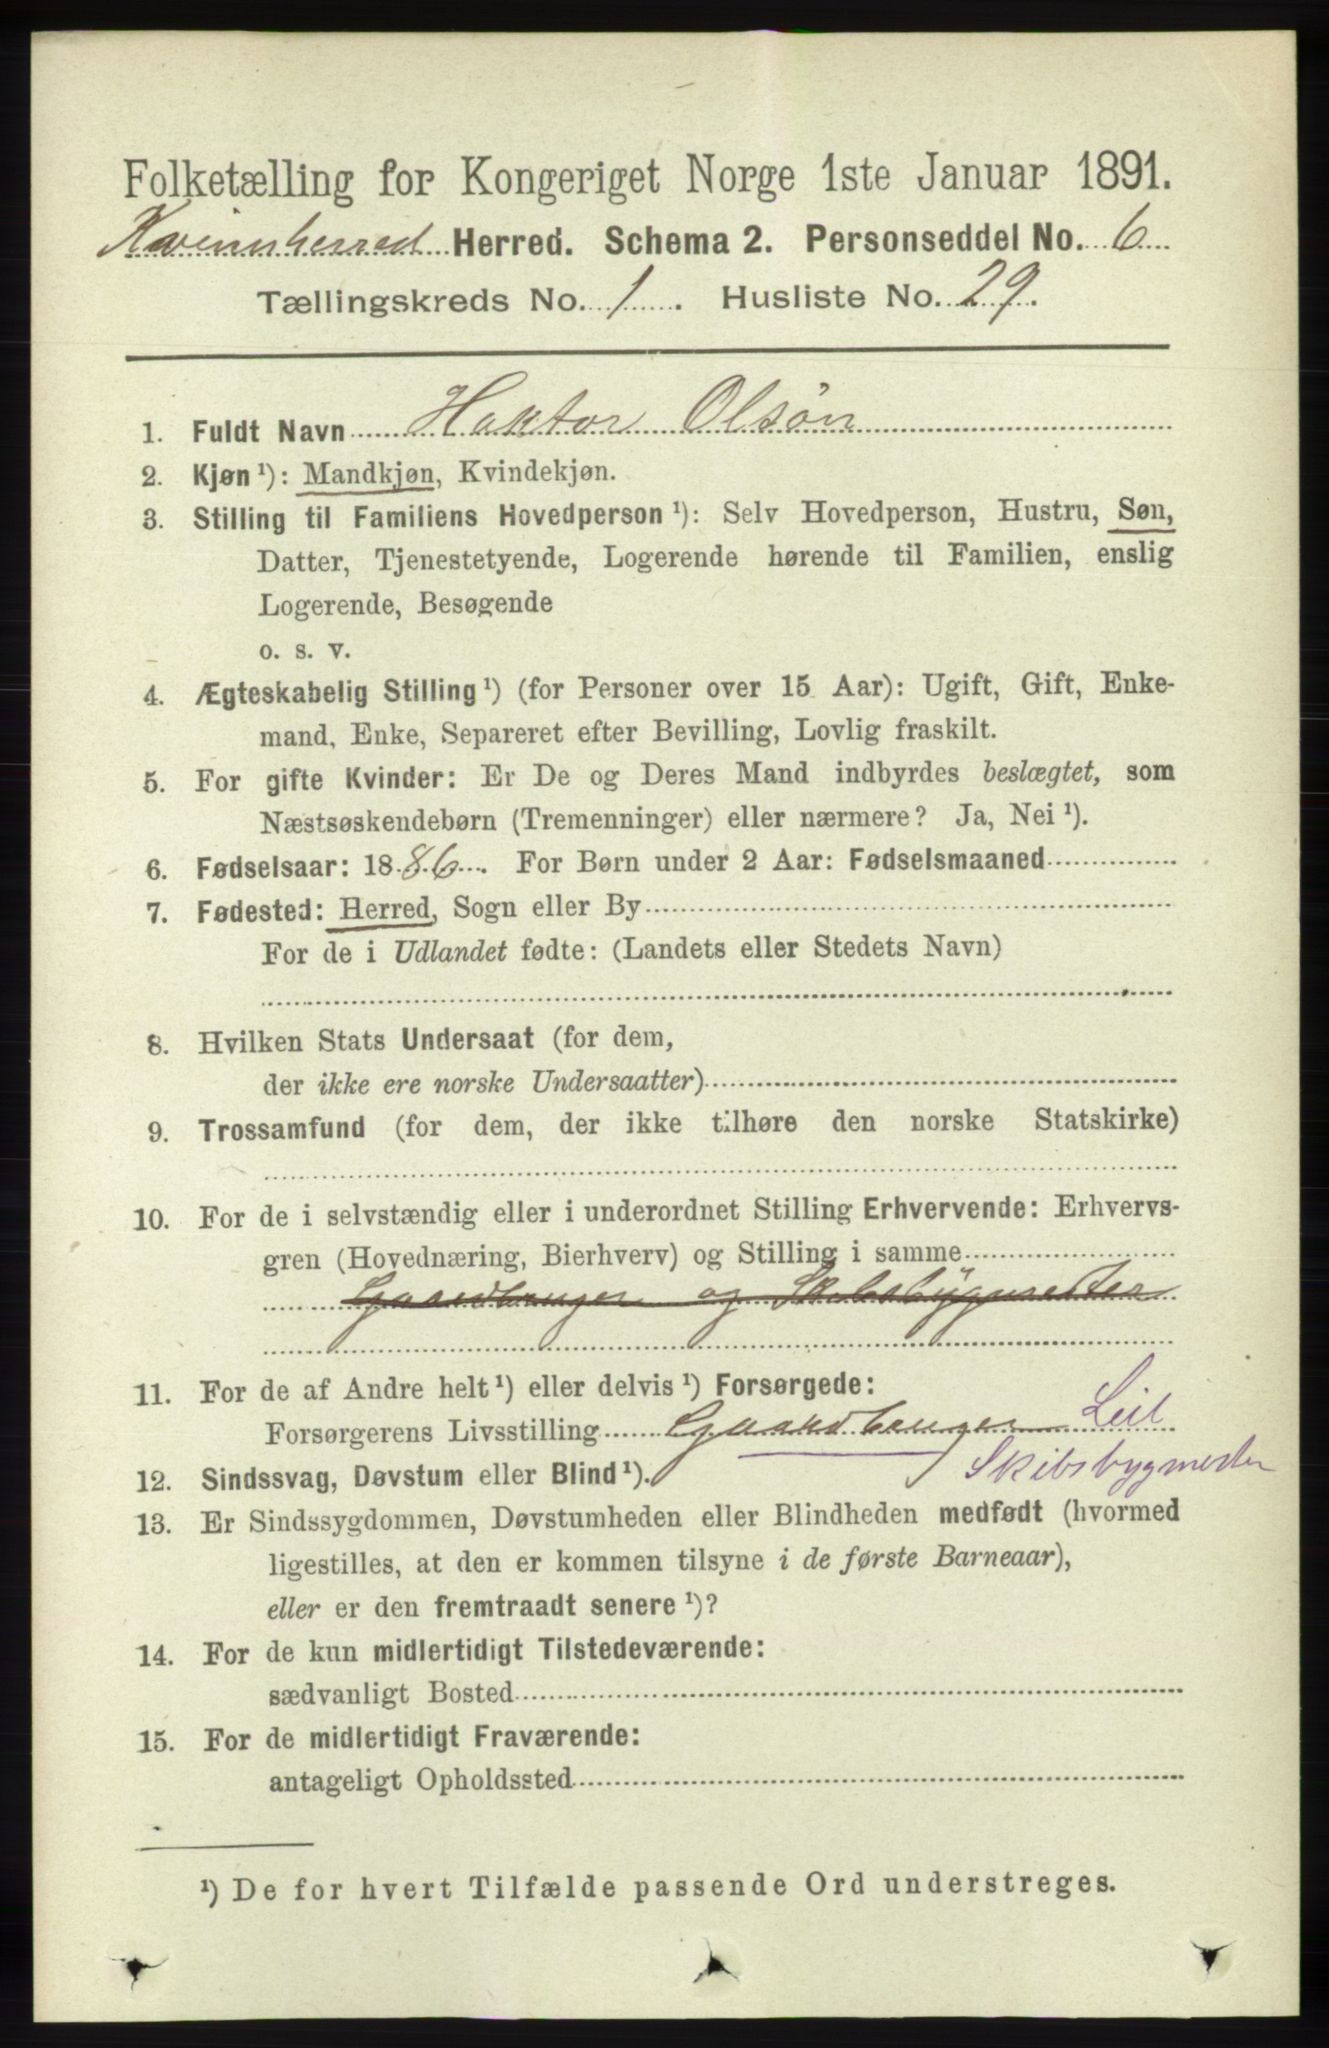 Folketælling for Kongeriget Norge 1ste Januar 1891.
Kvinnherred Herred. Schema 2. Personseddel No. 6
Tællingskreds No. 1. Husliste No. 29.
1. Fuldt Navn Haktor Olsøn
2. Kjøn ¹): Mandkjøn, Kvindekjøn.
3. Stilling til Familiens Hovedperson ¹): Selv Hovedperson, Hustru, Søn,
Datter, Tjenestetyende, Logerende hørende til Familien, enslig
Logerende, Besøgende
o. s. v.
4. Ægteskabelig Stilling ¹) (for Personer over 15 Aar): Ugift, Gift, Enke-
mand, Enke, Separeret efter Bevilling, Lovlig fraskilt.
5. For gifte Kvinder: Er De og Deres Mand indbyrdes beslægtet, som
Næstsøskendebørn (Tremenninger) eller nærmere? Ja, Nei ¹).
6. Fødselsaar: 1886. For Børn under 2 Aar: Fødselsmaaned
7. Fødested: Herred, Sogn eller By
For de i Udlandet fødte: (Landets eller Stedets Navn)
8. Hvilken Stats Undersaat (for dem,
der ikke ere norske Undersaatter)
9. Trossamfund (for dem, der ikke tilhøre den norske Statskirke)
10. For de i selvstændig eller i underordnet Stilling Erhvervende: Erhvervs-
gren (Hovednæring, Bierhverv) og Stilling i samme
Gaardbruger og Skibsbygmester
11. For de af Andre helt ¹) eller delvis ¹) Forsørgede:
Forsørgerens Livsstilling Gaardbruger Leil
Skibsbygmester
12. Sindssvag, Døvstum eller Blind ¹).
13. Er Sindssygdommen, Døvstumheden eller Blindheden medfødt (hvormed
ligestilles, at den er kommen tilsyne i de første Barneaar),
eller er den fremtraadt senere ¹)?
14. For de kun midlertidigt Tilstedeværende:
sædvanligt Bosted
15. For de midlertidigt Fraværende:
antageligt Opholdssted
¹) De for hvert Tilfælde passende Ord understreges.